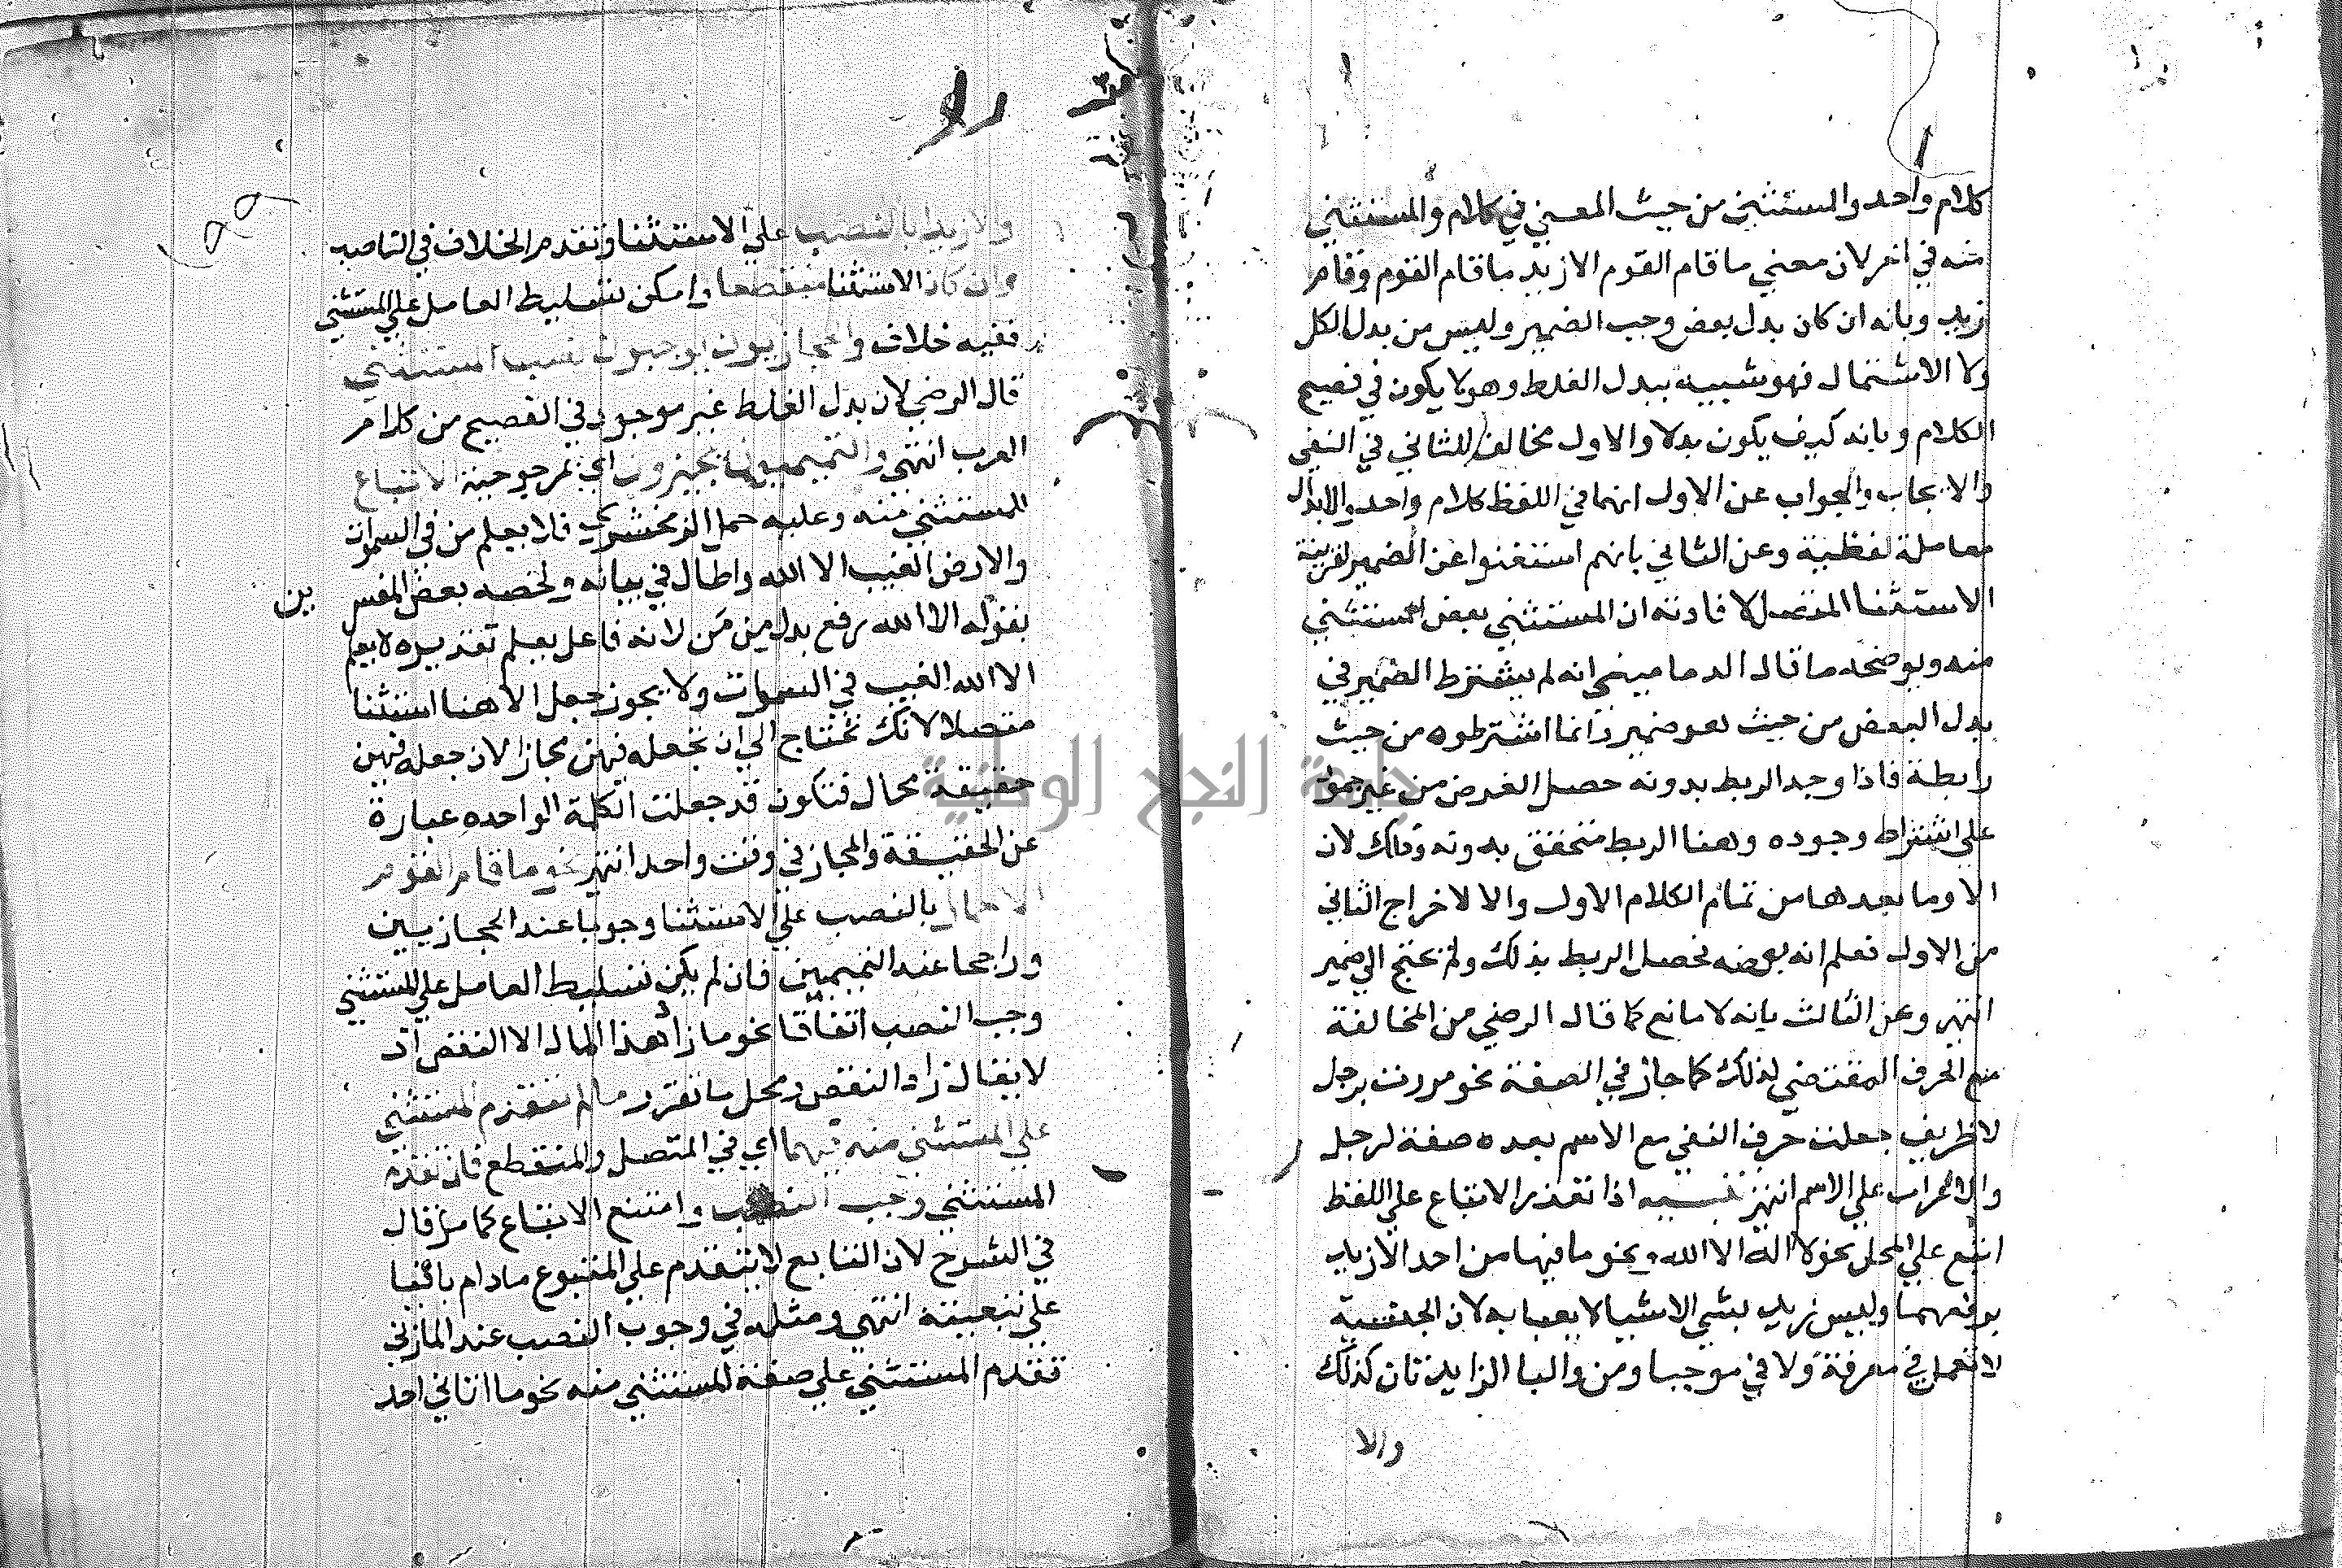 كلام واحد والمستثنى من حيث المعني في كلام والمستثني
منه في اخر لان معني ما قام القوم الا زيد ما قام القوم وقام
زيد وبانه ان كان بدل بعض وجب الضمير وليس من بدل الكل
ولا الاشتمال فهو شبيه ببدل الغلط وهو لا يكون في فصيح
الكلام وبانه كيف يكون بدلا والاول مخالف للثاني في النفي
والايجاب والجواب عن الاول انهما في اللفظ كلام واحد والابدال
معاملة لفظية وعن الثاني بانهم استغنوا عن الضمير لقرينة
الاستثنا المتصل لافادته ان المستثني بعض المستثني
منه ويوضحه ما قال الدماميني انه لم يشترط الضمير في
بدل البعض من حيث هو ضمير وانما اشترطوه من حيث
رابطة فاذا وجد الربط بدونه حصل الغرض من غير
على اشتراط وجوده وهنا الربط متحقق بدونه وذلك لان
الا وما بعدها من تمام الكلام الاول والا لاخراج الثاني
من الاول فعلم انه بعضه فحصل الربط بذلك ولم يحتج الي ضمير
انتهي وعن الثالث بانه لا مانع كما قال الرضي من المخالفة
مع الحرف المقتضي لذلك كما جاز في الصفة نحو مررت برجل
لا ظريف جعلت حرف النفي مع الاسم بعده صفة لرجل
والاعراب علي الاسم انتهي تنبيه اذا تعذر الاتباع علي اللفظ
اتبع علي المحل نحو لا اله الا الله ونحو ما فيها من احد الا زيد
برفعهما وليس زيد بشي الا شيا لا يعبا به لان الجنسية
لا تعمل في معرفة ولا في موجب ومن والبا الزايدتان كذلك
والا
والا زيدا بالنصب علي الاستثنا وتقدم الخلاف في الناصب
وان كان الاستثنا منقطعا وامكن تسليط العامل علي المستثني
ففيه خلاف والحجازيون يوجبون نصب المستثني
قال الرضي لان بدل الغلط غير موجود في الفصيح من كلام
العرب انتهى والتميميون يجيزون اي بمرجوحية الاتباع
للمستثني منه وعليه حمل الزمخشري قل لا يعلم من في السموات
والارض الغيب الا الله واطال في بيانه ولخصه بعض المفسرين
بقوله الا الله برفع بدل من مَن لانه فاعل يعلم تقديره لا يعلم
الا الله الغيب في السموات ولا يجوز جعل الا هنا استثنا
متصلا لانك تحتاج الي ان تجعله فيهن مجازا لان جعله فيهن
حقيقة محال فتكون قد جعلت الكلمة الواحدة عبارة
عن الحقيقة والمجاز في وقت واحد انتهى نحو ما قام القوم
الا حمارا بالنصب علي الاستثنا وجوبا عند الحجازيين
وراجحا عند التميميين فان لم يكن تسليط العامل علي المستثني
وجب النصب اتفاقا نحو ما زاد هذا المال الا النقص اذ
لا يقال زاد النقص ومحل ما تقرر ما لم يتقدم المستثني
علي المستثني منه فيهما اي في المتصل والمنقطع فان تقدم
المستثني وجب النصب وامتنع الاتباع كما مر قال
في الشرح لان التابع لا يتقدم علي المتبوع ما دام باقيا
علي تبعيته انتهي ومثله في وجوب النصب عند المازني
تقدم المستثني علي صفة المستثني منه نحو ما اتاني احد